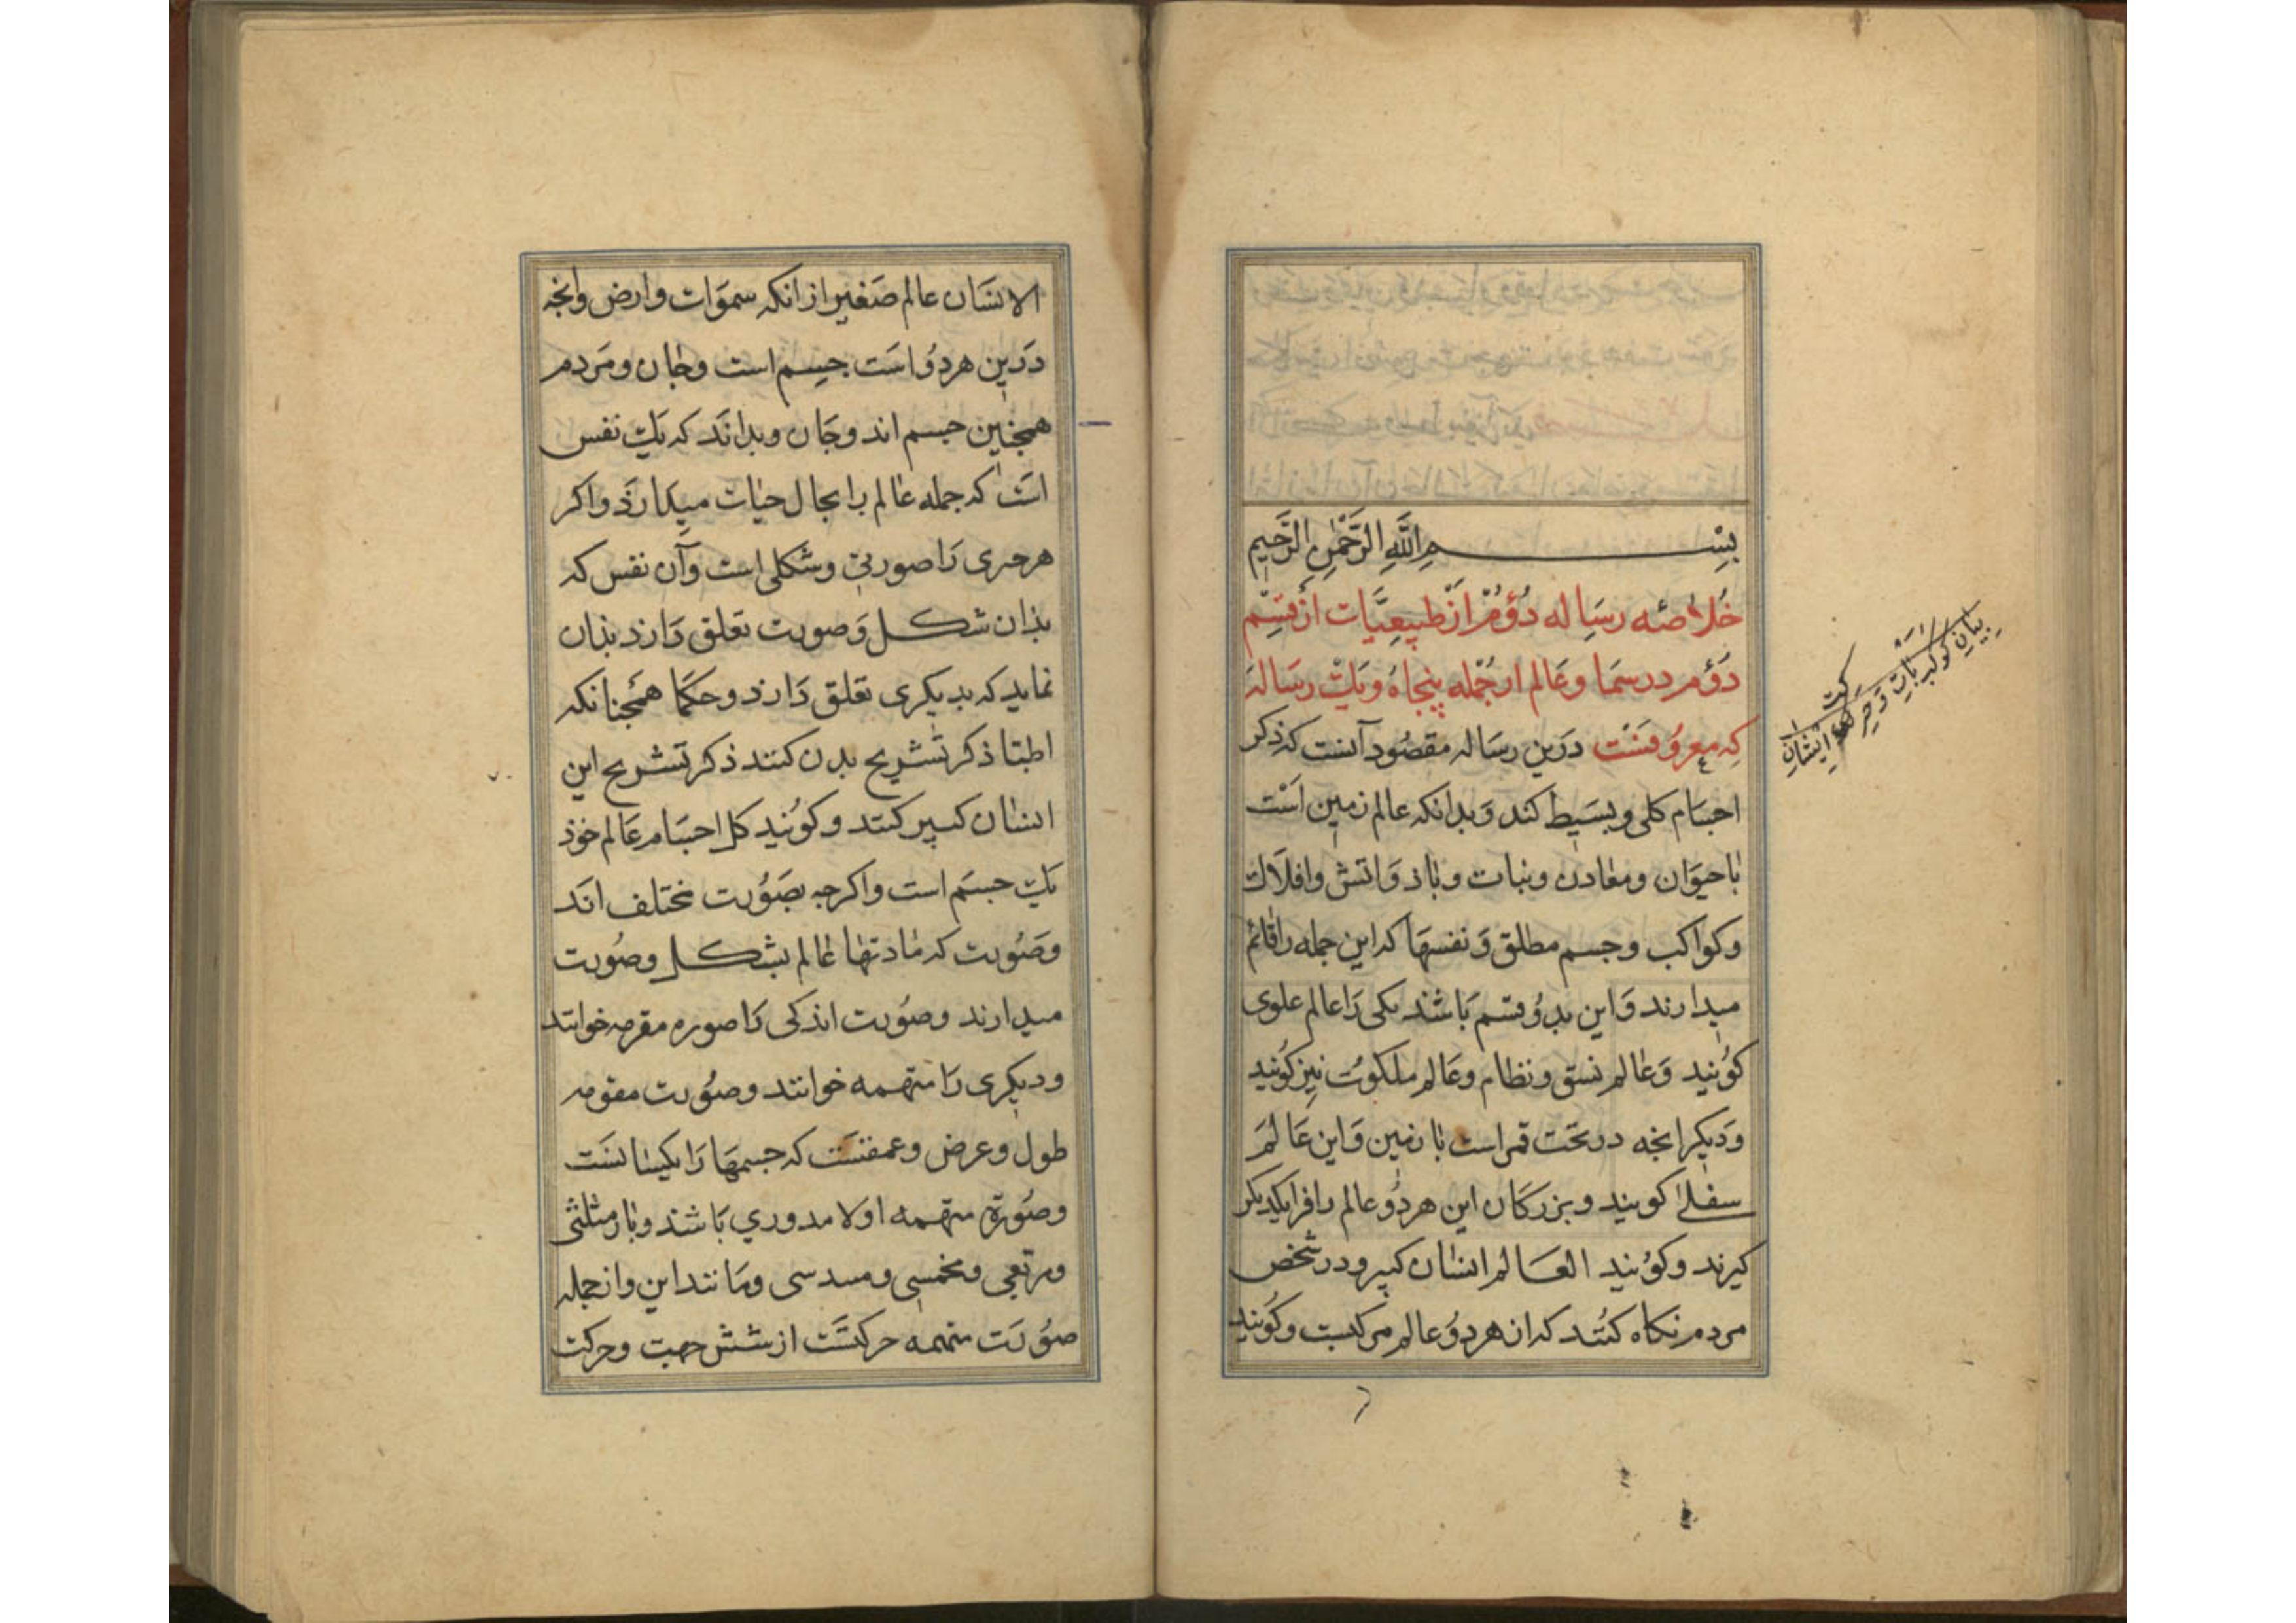 بِسْمِ اللَّهِ الرَّحْمٰنِ الرَّحِيمِ
خُلاصَه رسَاله دُوُمْ اَزْ طَبيعِيَّات اَزْ قِسْمِ
دَوُم در سما و عَالم از جُمله پنجَاهُ و يَك رسَالَه
كِه معروُفسْت دَرين رسَاله مقصُود آنست كه ذكر
اجسَام كلى و بسَيط كند وَ بدانكه عالم زمين اَسْت
با حيَوَان و معادن و نبات و باذ وَ اتش و افلَاك
و كواكب و جسم مطلق وَ نفسهَا كه اين جمله را قائم
ميدارند وَ اين بدوُ قسم بَاشند يكى رَا عالم علوى
كوُنيد وَ عالم نسق و نظام و عَالم ملكوُت نيز كوُنيد
وَ ديكر انجه در تحت قمر است با زمين وَ اين عَالمَ
سفلى كويند و بزركَان اين هردوُ عالم را فرا يكديكر
كيرند و كوُنيد العَالم انسَان كبير و در شخص
مردم نكاه كنُند كه از هردوُ عالم مركبست و كوُنيد
بيان كواكب ثابت و حركت ايشان
الانسَان عالم صَغير از انكه سموَات و ارض و انجه
دَرين هردوُ است جسم است و جان و مَردم
همجنين جسم اند و جَان و بدانَد كه يك نفس
است كه جمله عالم را بحال حيات ميدارَذ و اكر
هر جزى رَا صورتى و شكلى است و آن نفس كه
بذان شكل وَ صورت تعلق دَارذ بذان
نمايد كه بديكرى تعلق دَارذ و حكما همجنانكه
اطبا ذكر تشريح بدن كنند ذكر تشريح اين
انسان كبير كنند و كوُنيد كل اجسَام عَالم خوذ
يك جسَم است و اكرجه بصَوُرت مختلف اند
و صَوُرت كه مادتها عالم بشكل و صوُرت
ميدارند و صوُرت اند كى رَا صوره مقومه خوانند
و ديكرى رَا متممه خوانند و صوُرت مقومه
طول و عرض و عمقسَت كه جسمهَا رَا يكسانسَت
و صوُرة متممه اولا مدوري بَاشند و باز مثلثى
و مربعى و مخمسى و مسدسى و مَانند اين و از جمله
صوُرَت متممه حركتسَت از شش جهت و حركت